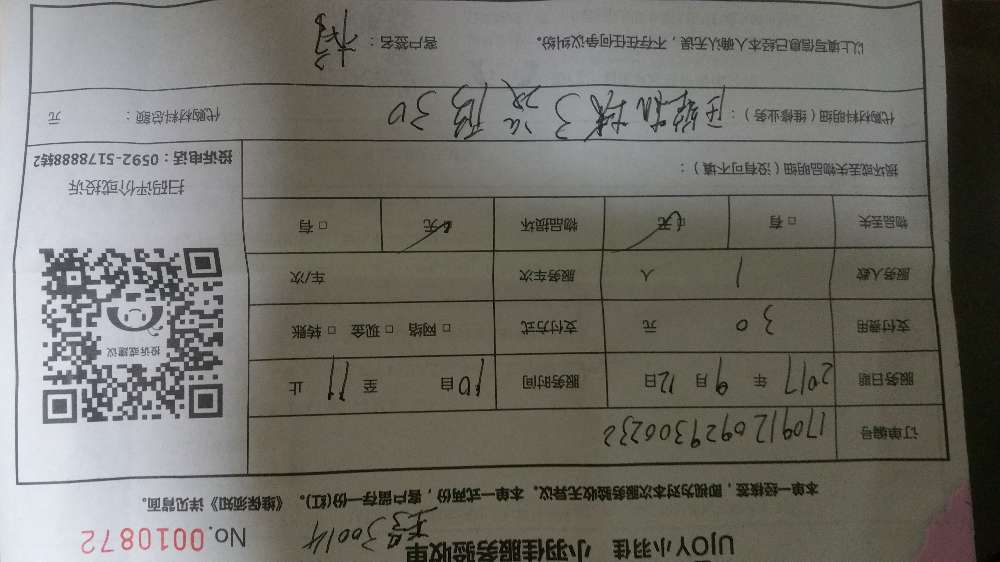 UJOY小羽佳 小羽佳服务验收单
30014
No.0010872
本单一经核签，即视为对本次服务验收无异议。本单一式两份，客户留存一份(红)。《维保须知》详见背面。
订单编号 1709120929306232
服务日期 2017 年 9 月 12 日 服务时间 10 自 至 11 止
支付费用 30 元 支付方式 □ 网络 □ 现金 □ 转账
服务人数 1 人 服务车次 车/次
物品丢失 □ 有 □ 无 物品损坏 □ 无 □ 有
投诉或建议
扫码评价或投诉
投诉电话：0592-5178888转2
损坏或丢失物品明细（没有可不填）：
代购材料明细（维修业务）： 30
代购材料总额： 元
以上填写信息已经本人确认无误，不存在任何争议纠纷。 客户签名：